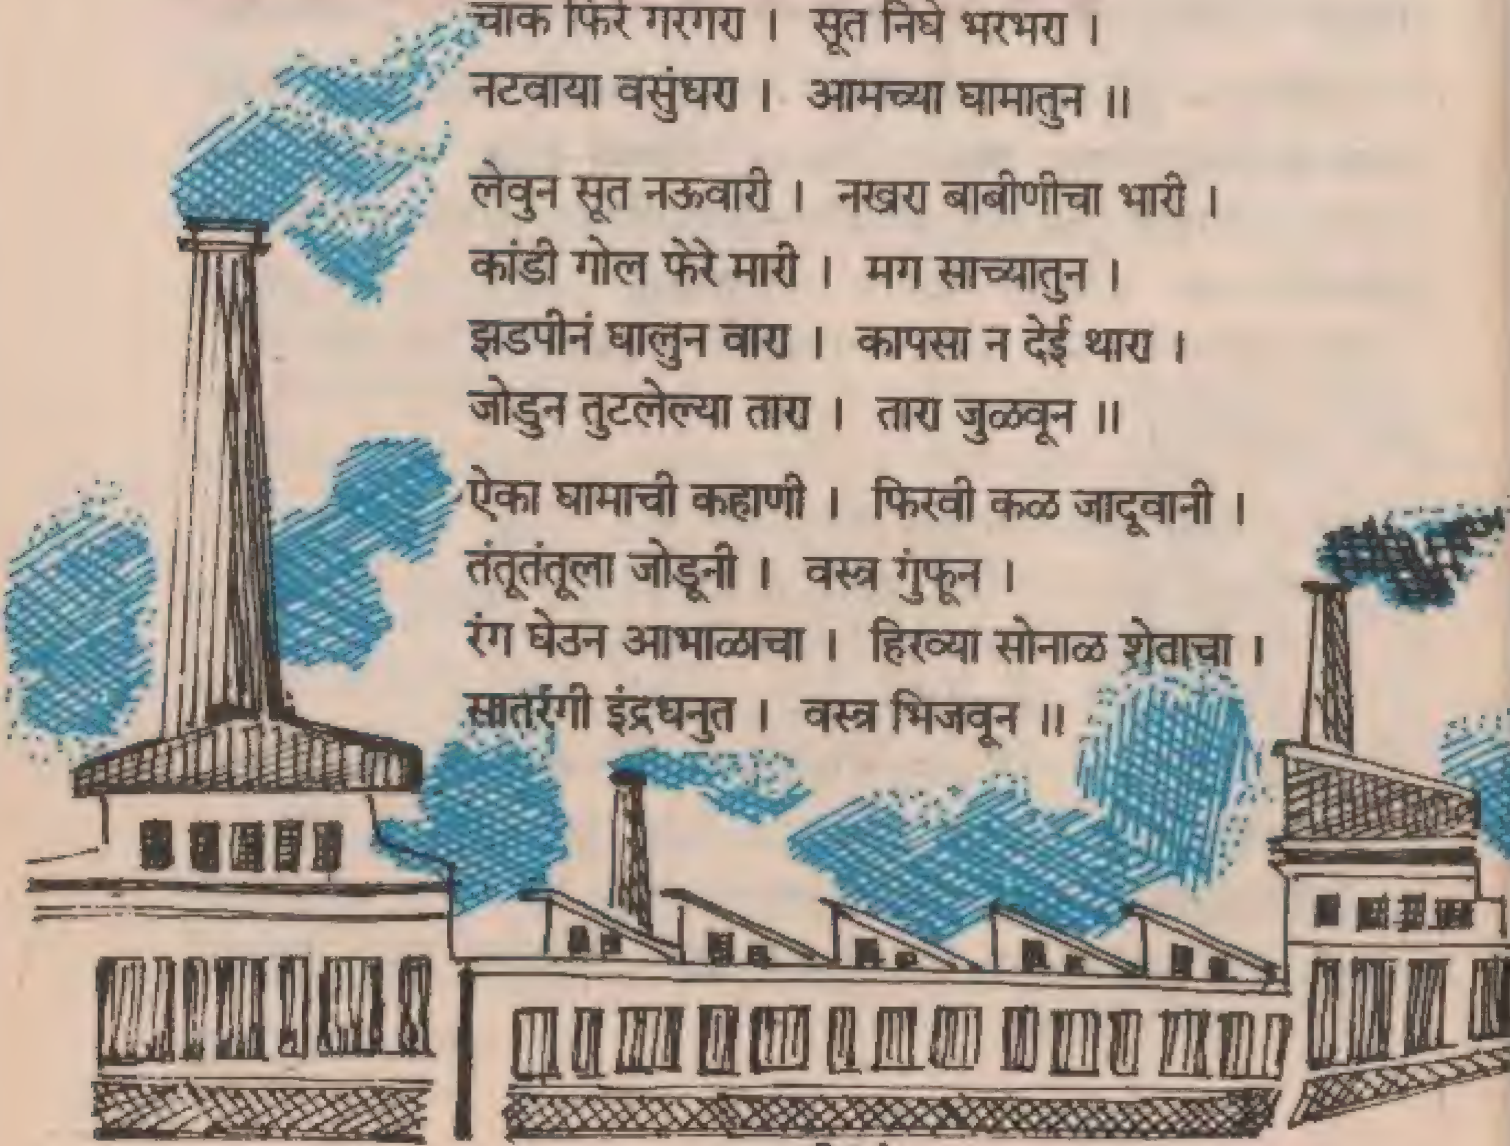 चाक फिरे गरगरा । सूत निघे भरभरा ।
नटवाया वसुंधरा । आमच्या घामातुन ॥
लेवुन सूत नऊवारी । नखरा बाबीणीचा भारी ।
कांडी गोल फेरे मारी । मग साच्यातुन ।
झडपीनं घालुन वारा । कापसा न देई थारा ।
जोडुन तुटलेल्या तारा । तारा जुळवून ॥
ऐका घामाची कहाणी । फिरवी कळ जादूवानी ।
तंतूतंतूला जोडूनी । वस्त्र गुंफून ।
रंग घेउन आभाळाचा । हिरव्या सोनाळ शेताचा ।
सातरंगी इंद्रधनुत । वस्त्र भिजवून ॥